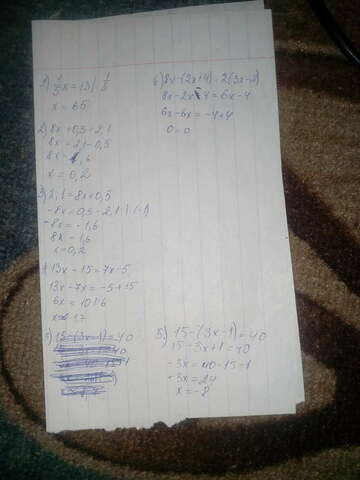 1) 1/5 x = 13 | · 1/5
x = 65
2) 8x + 0,5 = 2,1
8x = 2,1 - 0,5
8x = 1,6
x = 0,2
3) 2,1 = 8x + 0,5
-8x = 0,5 - 2,1 | · (-1)
-8x = -1,6
8x = 1,6
x = 0,2
4 13x - 15 = 7x - 5
13x - 7x = -5 + 15
6x = 10 : 6
5) 15 - (3x - 1) = 40
6) 8x - (2x + 4) = 2(3x - 2)
8x - 2x - 4 = 6x - 4
6x - 6x = -4 + 4
0 = 0
5) 15 - (3x - 1) = 40
15 - 3x + 1 = 40
-3x = 40 - 15 - 1
-3x = 24
x = -8